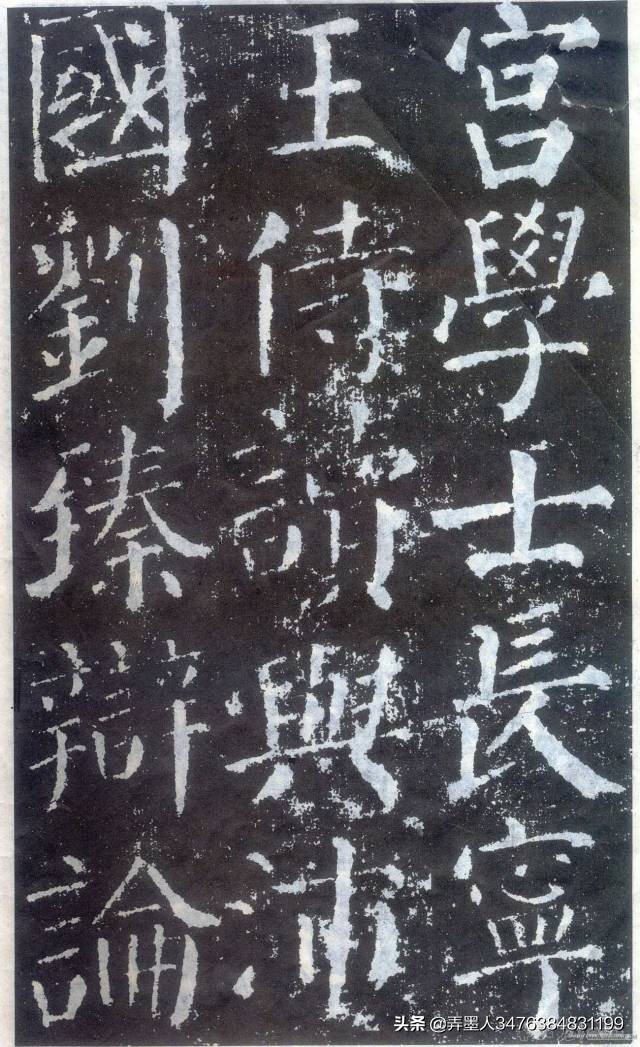 宮學士長寧
王侍讀與沛
國劉臻辯論
头条 @弄墨人3476384831199